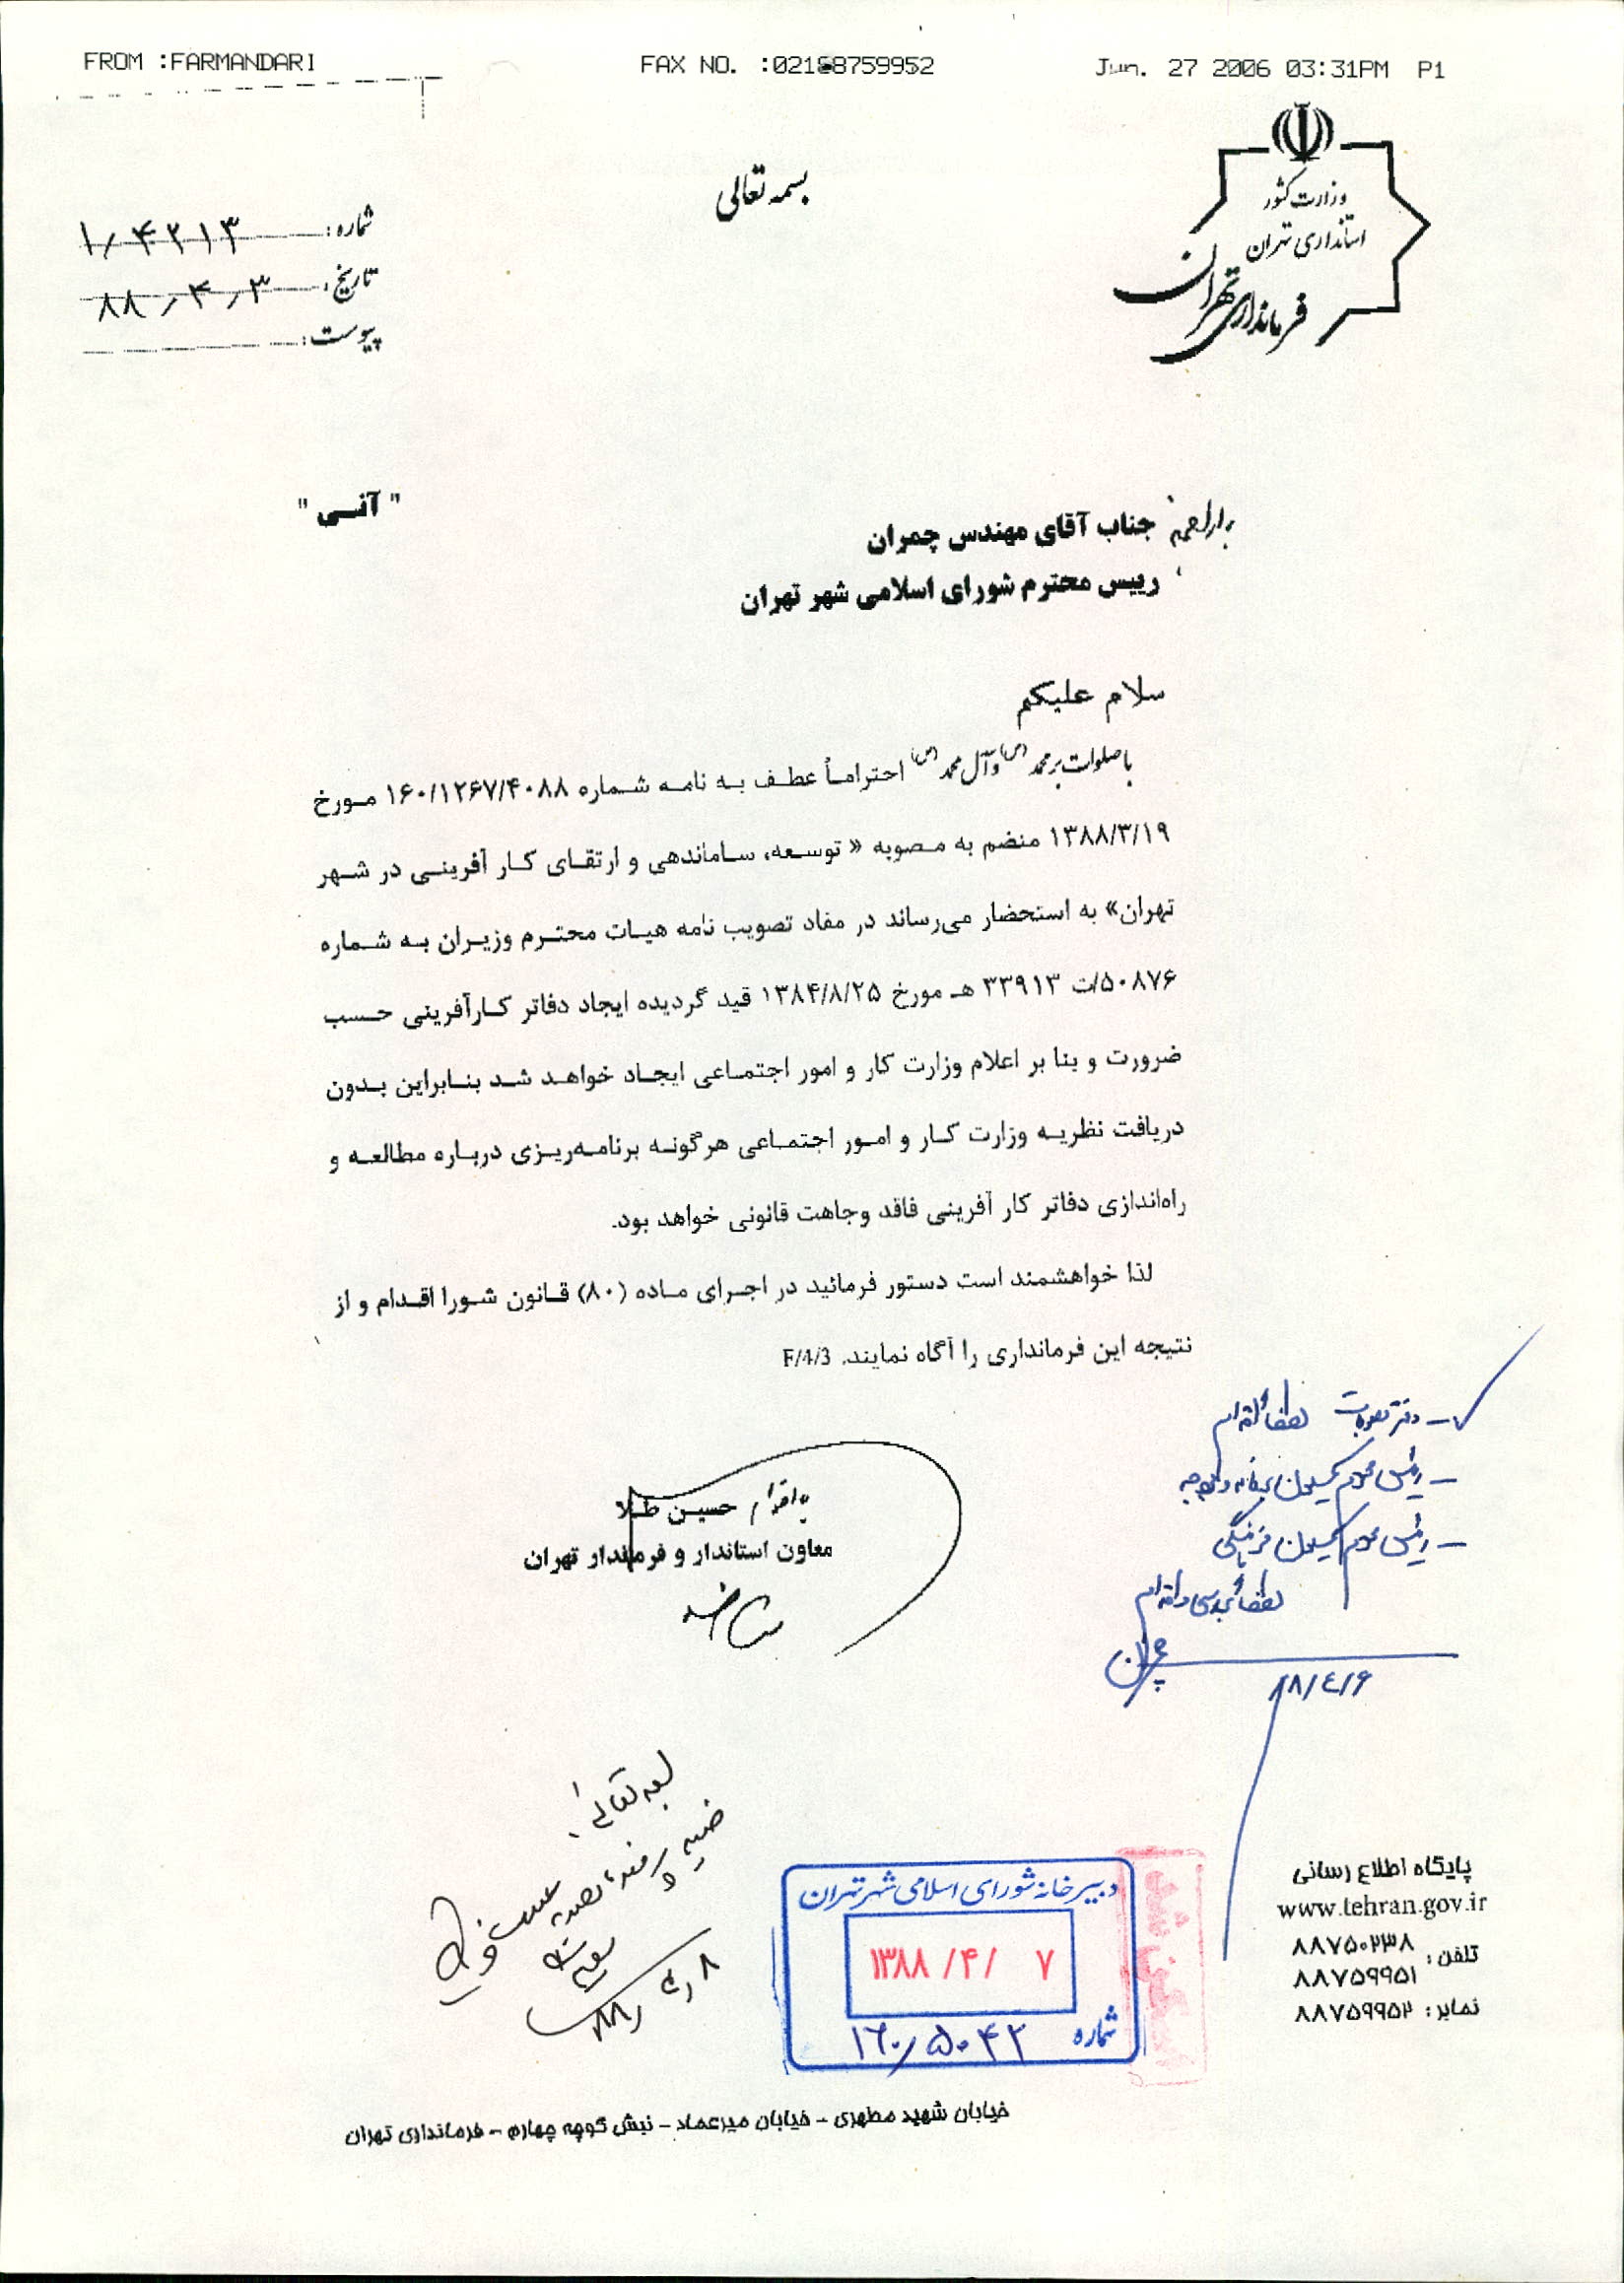 FROM :FARMANDARI FAX NO. :02188759952 Jun. 27 2006 03:31PM P1
وزارت کشور
استانداری تهران
فرمانداری تهران
بسمه تعالی
شماره: ۱/۴۲۱۳
تاریخ: ۸۸/۴/۳
پیوست:
" آنی "
جناب آقای مهندس چمران
رییس محترم شورای اسلامی شهر تهران
سلام علیکم
با صلوات بر محمد (ص) و آل محمد (ص) احتراماً عطف به نامه شماره ۱۶۰/۱۲۶۷/۴۰۸۸ مورخ
۱۳۸۸/۳/۱۹ منضم به مصوبه « توسعه، ساماندهی و ارتقای کار آفرینی در شهر
تهران» به استحضار می‌رساند در مفاد تصویب نامه هیات محترم وزیران به شماره
۵۰۸۷۶/ت ۳۳۹۱۳ هـ مورخ ۱۳۸۴/۸/۲۵ قید گردیده ایجاد دفاتر کارآفرینی حسب
ضرورت و بنا بر اعلام وزارت کار و امور اجتماعی ایجاد خواهد شد بنابراین بدون
دریافت نظریه وزارت کار و امور اجتماعی هرگونه برنامه‌ریزی درباره مطالعه و
راه‌اندازی دفاتر کار آفرینی فاقد وجاهت قانونی خواهد بود.
لذا خواهشمند است دستور فرمائید در اجرای ماده (۸۰) قانون شورا اقدام و از
نتیجه این فرمانداری را آگاه نمایند. F/4/3
حسین طلا
معاون استاندار و فرماندار تهران
– دفتر مصوبات لطفاً اقدام
– رئیس محترم کمیسیون برنامه و بودجه
– رئیس محترم کمیسیون فرهنگی
لطفاً بررسی و اقدام
چمران
۸۸/۴/۶
بسمه تعالی
۸۸/۴/۸
دبیرخانه شورای اسلامی شهر تهران
۱۳۸۸ /۴/ ۷
شماره ۱۶۰/۵۰۴۲
پایگاه اطلاع رسانی
www.tehran.gov.ir
تلفن: ۸۸۷۵۰۲۳۸
۸۸۷۵۹۹۵۱
نمابر: ۸۸۷۵۹۹۵۲
خیابان شهید مطهری – خیابان میرعماد – نبش کوچه چهارم – فرمانداری تهران